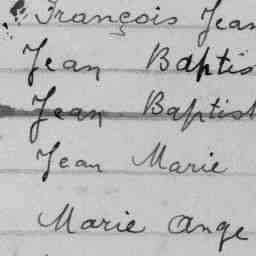 François Jean
Jean Baptis
Jean Baptist
Jean Marie
Marie Ange